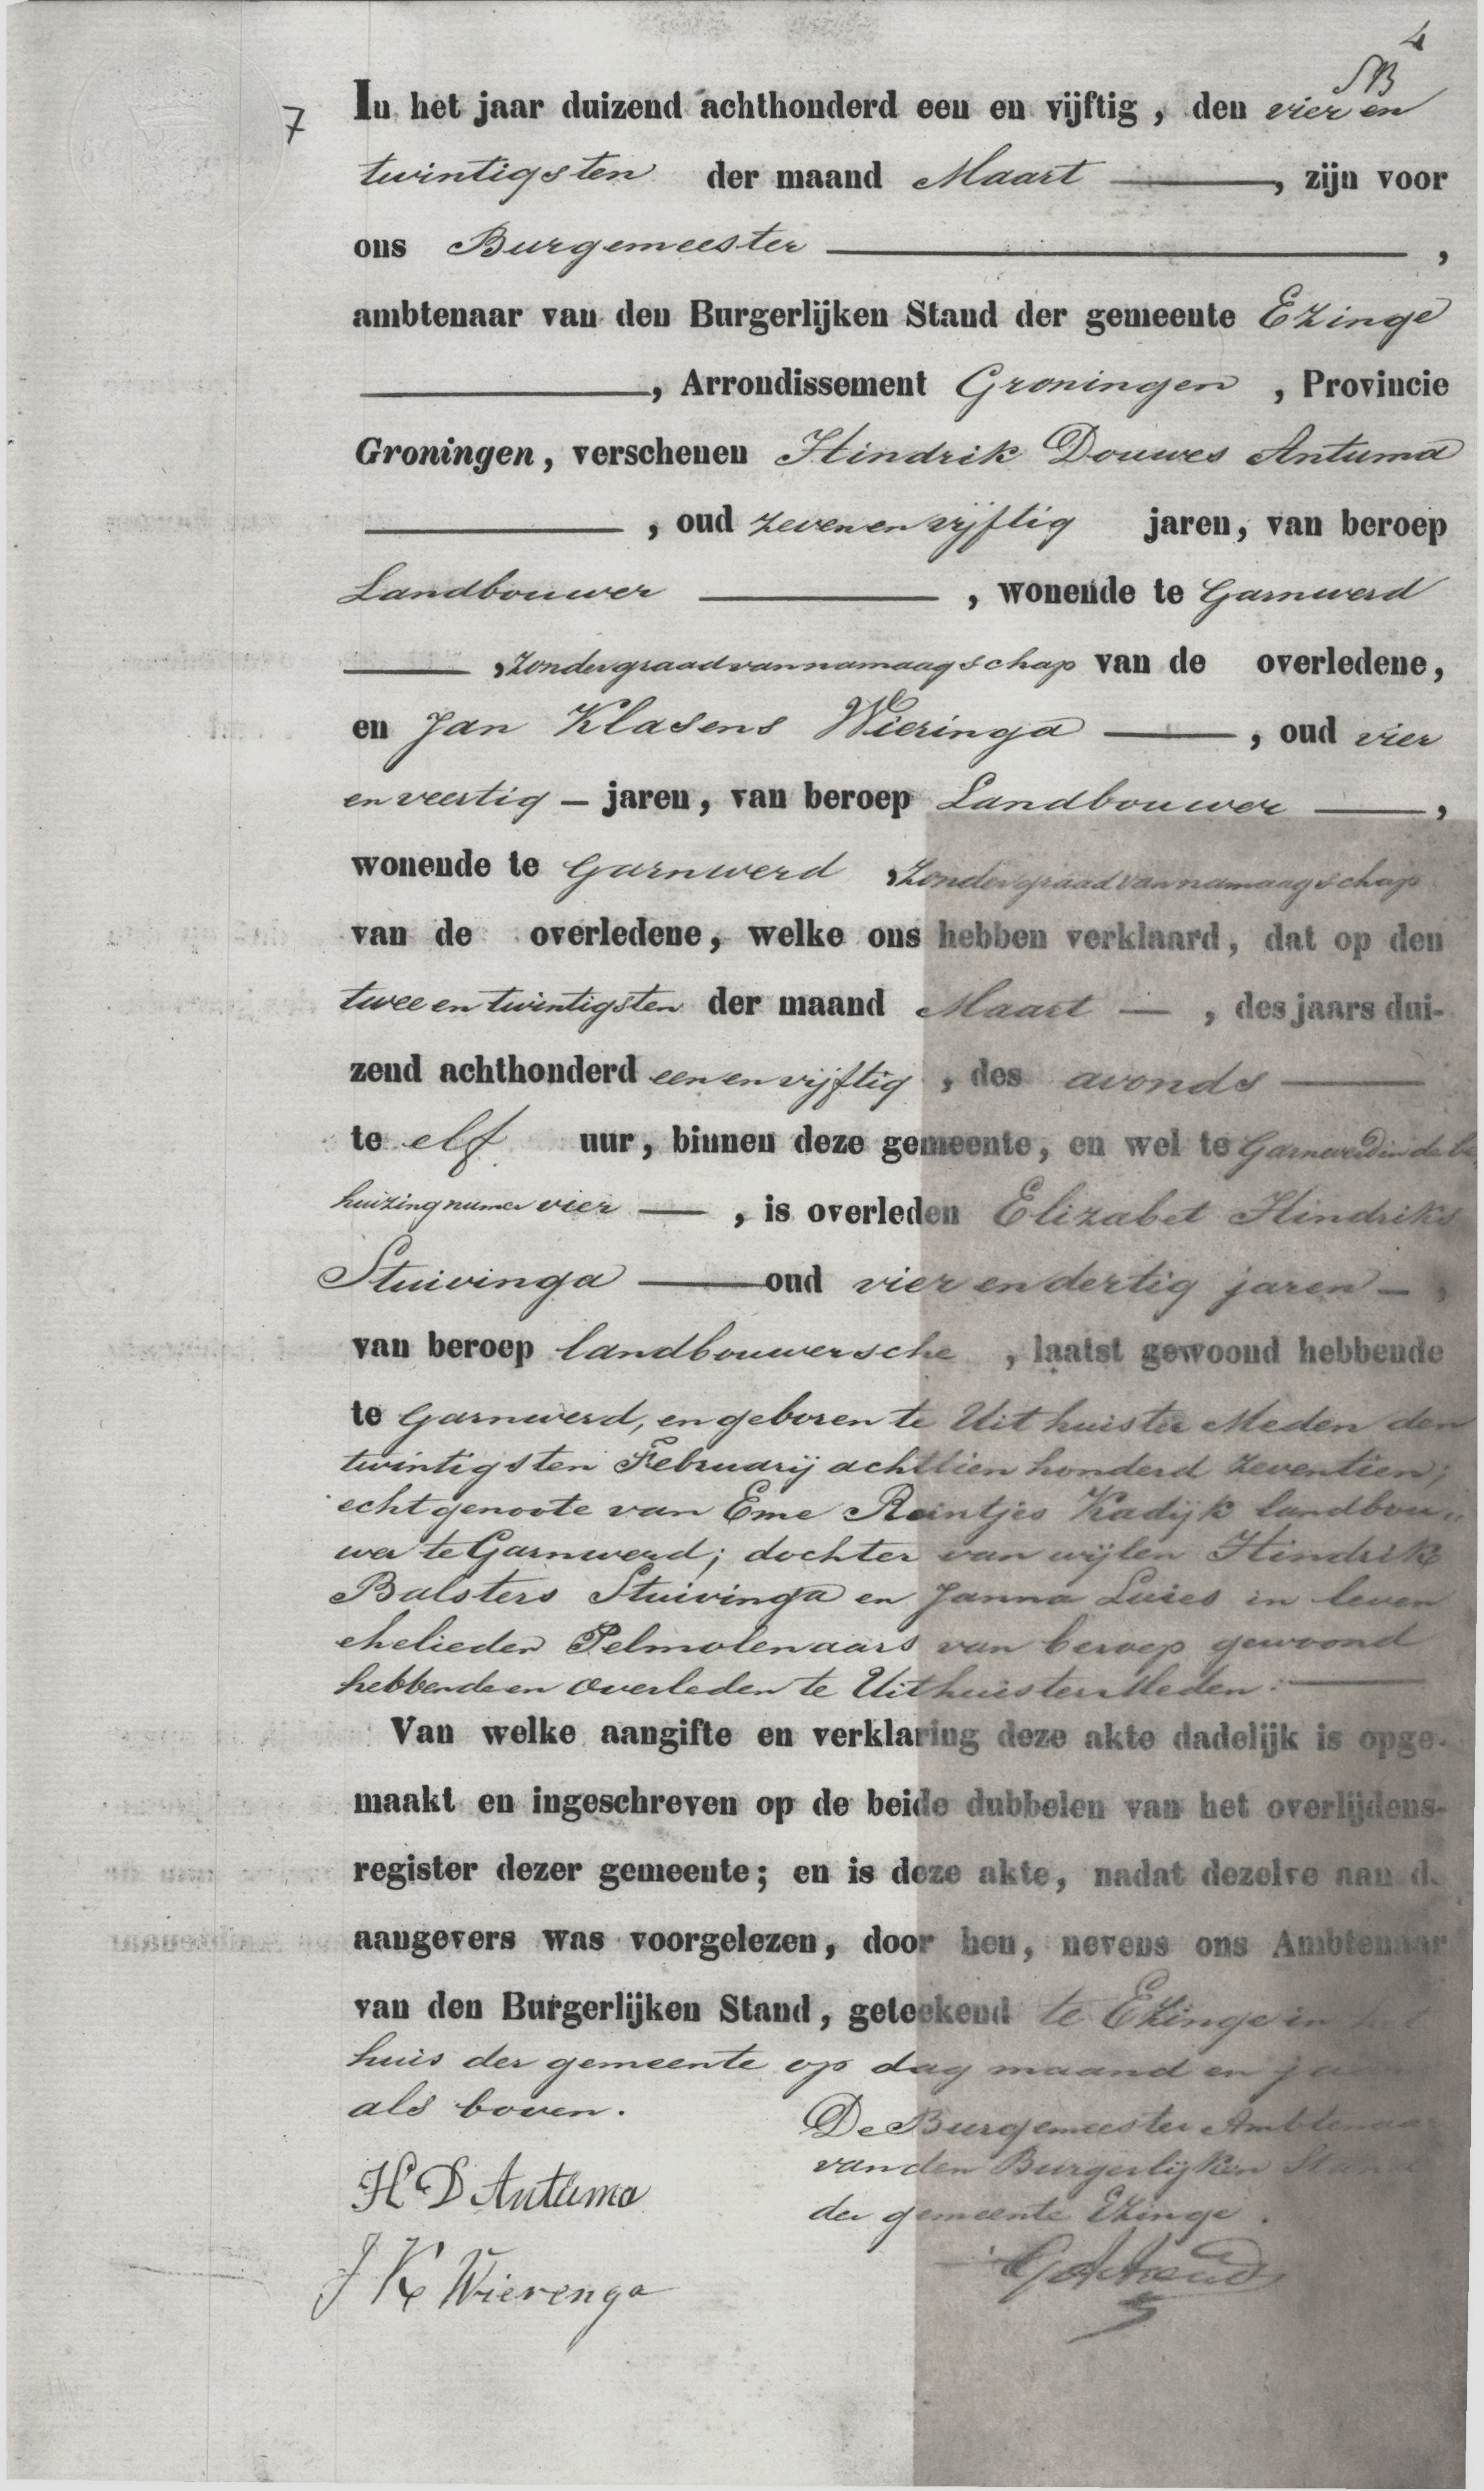 4
SB
7 In het jaar duizend achthonderd een en vijftig, den vier en
twintigsten der maand Maart ———, zijn voor
ons Burgemeester ———,
ambtenaar van den Burgerlijken Stand der gemeente Ezinge
———, Arrondissement Groningen, Provincie
Groningen, verschenen Hindrik Douwes Antuma
———, oud zeven en vijftig jaren, van beroep
Landbouwer ———, wonende te Garnwerd
———, zonder graad van namaagschap van de overledene,
en Jan Klasens Wieringa ———, oud vier
en veertig — jaren, van beroep Landbouwer ———,
wonende te Garnwerd, zonder graad van namaagschap
van de overledene, welke ons hebben verklaard, dat op den
twee en twintigsten der maand Maart —, des jaars dui-
zend achthonderd een en vijftig, des avonds ———
te elf uur, binnen deze gemeente, en wel te Garnwerd in de be
huizing numer vier ——, is overleden Elizabet Hindriks
Stuivinga ——— oud vier en dertig jaren —,
van beroep landbouwersche, laatst gewoond hebbende
te Garnwerd, en geboren te Uithuister Meden den
twintigsten Februarij achttien honderd zeventien;
echtgenoote van Eme Reintjes Kadijk landbou„
wer te Garnwerd; dochter van wijlen Hindrik
Balsters Stuivinga en Janna Luies in leven
ehelieden Pelmolenaars van beroep gewoond
hebbende en overleden te Uithuister Meden. ———
Van welke aangifte en verklaring deze akte dadelijk is opge-
maakt en ingeschreven op de beide dubbelen van het overlijdens-
register dezer gemeente; en is deze akte, nadat dezelve aan de
aangevers was voorgelezen, door hen, nevens ons Ambtenaar
van den Burgerlijken Stand, geteekend te Ezinge in het
huis der gemeente op dag maand en jaar
als boven.
De Burgemeester Ambtenaar
van den Burgerlijken Stand
der gemeente Ezinge.
H D Antuma
J K Wierenga